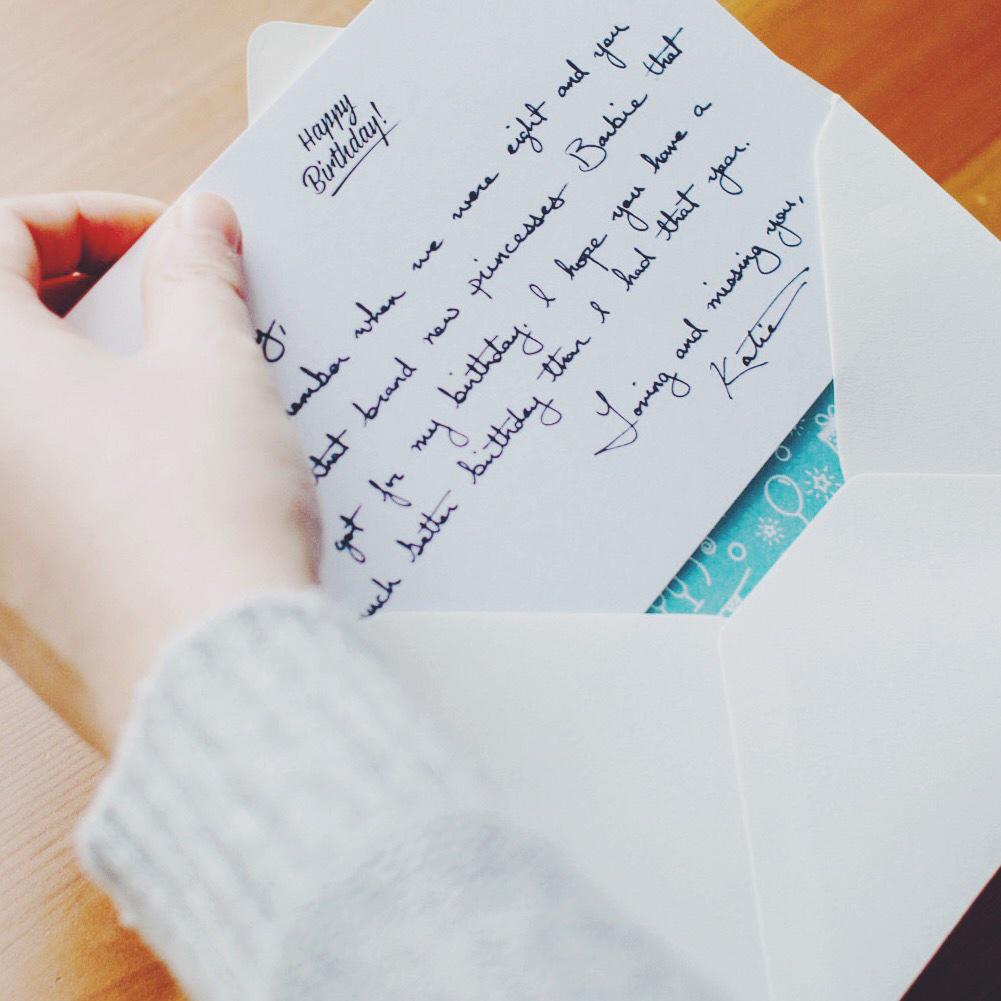 Happy
Birthday!
y,
ember when we were eight and you
that brand new princesses Barbie that
got for my birthday. I hope you have a
uch better birthday than I had that year.
Loving and missing you,
Katie